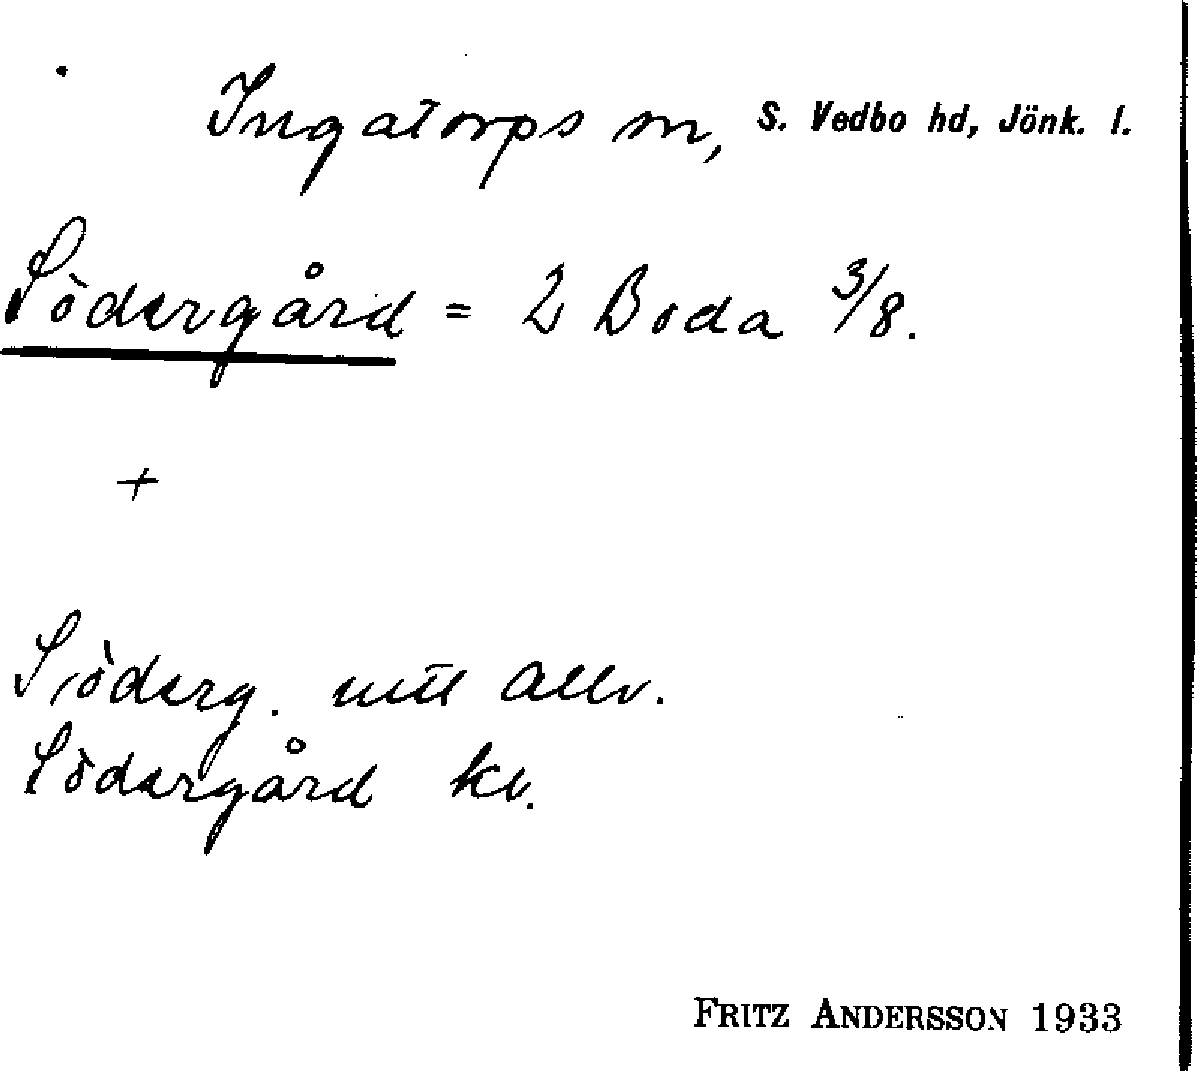 Ingatorps sn, S. Vedbo hd, Jönk. l.
Södergård = 2 Boda 3/8.
+
Söderg. utt allv.
Södergård kv.
FRITZ ANDERSSON 1933